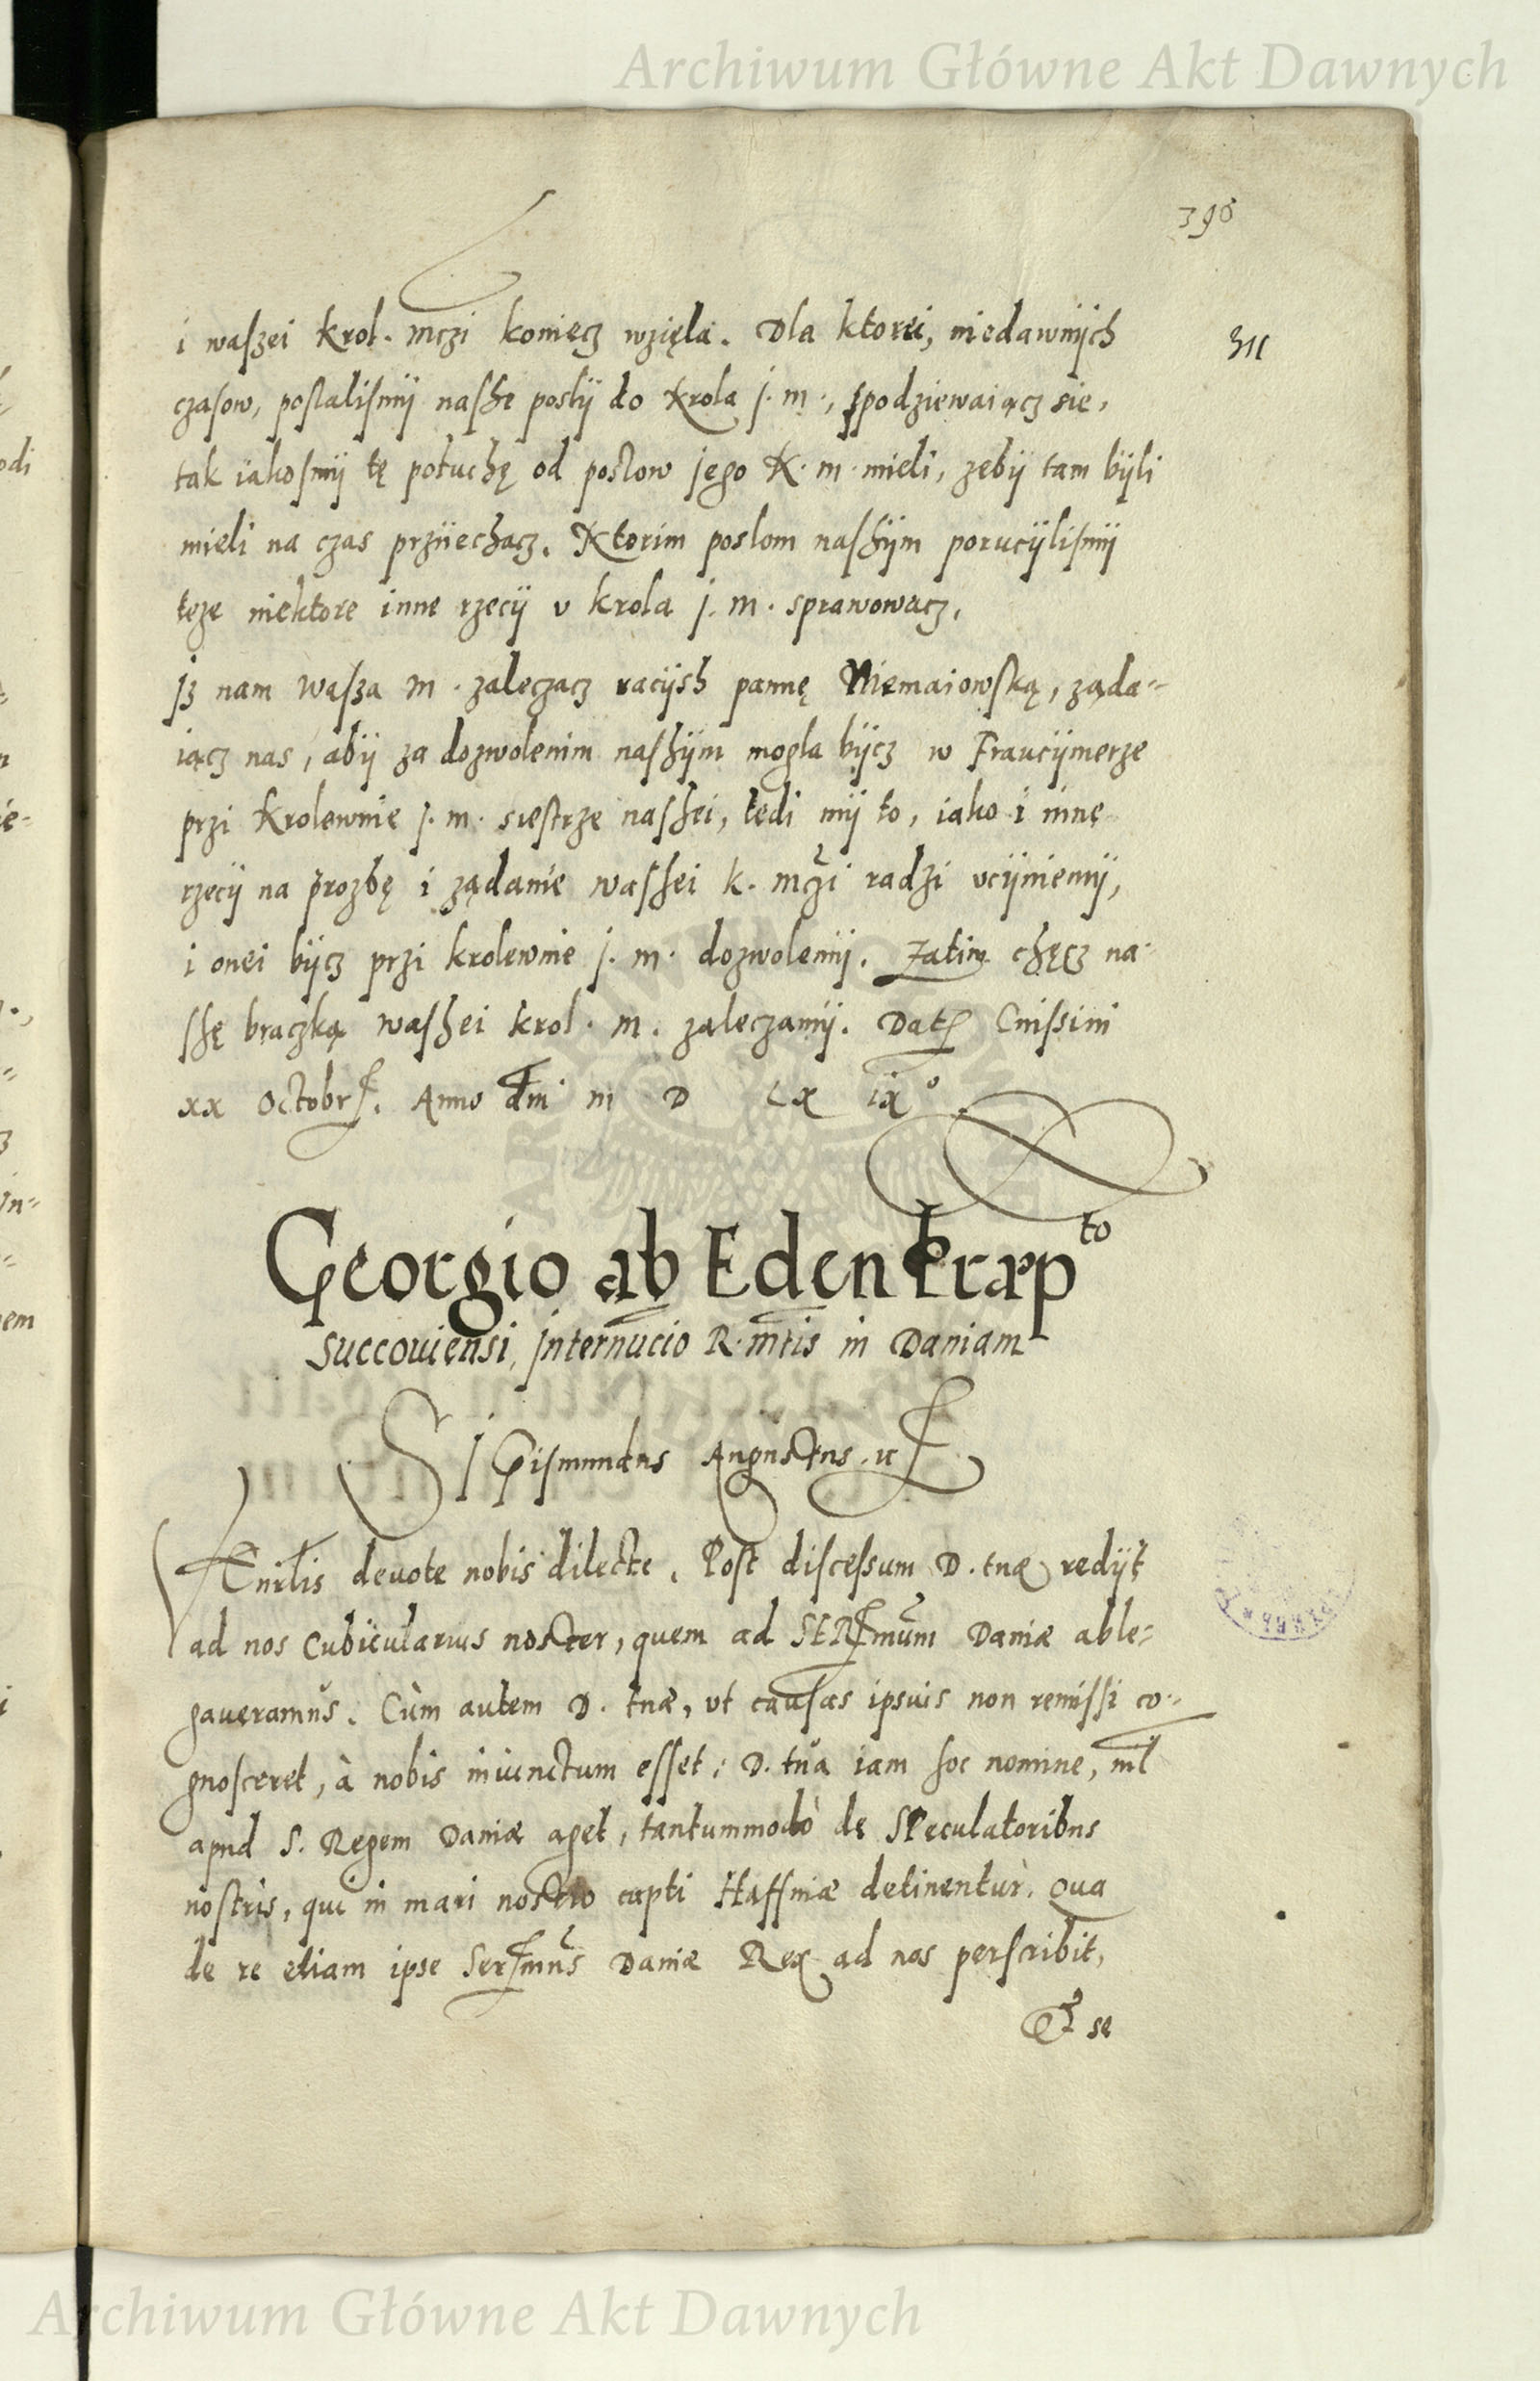 Archiwum Główne Akt Dawnych
398
311
i waszei Krol. mczi koniecz wzięla. Dla ktorei, niedawnÿch
czasow, poslalismÿ nashe poslÿ do Krola j. m., spodziewaiącz sie,
tak iakosmÿ tę potuchę od poslow jego K. m. mieli, zebÿ tam bÿli
mieli na czas prziiechacz. Ktorim poslom nashÿm porucÿlismÿ
teze niektore inne rzecÿ v krola j. m. sprawowacz.
Jz nam wasza m. zaleczacz racÿsh pannę Niemaiowską, ząda=
iącz nas, abÿ za dozwolenim nashÿm mogla bÿcz w Fraucÿmerze
przi Krolewnie j. m. siestrze nashei, tedi mÿ to, iako i inne
rzecÿ na prozbę i ządanie washei k. mczi radzi vcÿniemÿ,
i onei bÿcz przi krolewnie j. m. dozwolemÿ. Zatim chęcz na=
shę braczką washei krol. m. zaleczamÿ. Dat Cnissini
xx Octobr. Anno dni m D Lx ix°
Georgio ab Edenkrap to
Succoviensi, Internucio R. mtis in Daniam
Sigismundus Augustus
devote nobis dilecte. Post discessum D. tuæ redijt
ad nos Cubicularius noster, quem ad SERmum Daniæ able=
gaveramus. Cùm autem D. tuæ, vt causas ipsius non remissi co=
gnosceret, à nobis iniunctum esset; D. tua iam hoc nomine, nil
apud S. Regem Daniæ aget, tantummodò de Speculatoribus
nostris, qui in mari nostro capti Haffniæ detinentur. Qua
de re etiam ipse Sermus Daniæ Rex ad nos perscribit,
Et se
Archiwum Główne Akt Dawnych